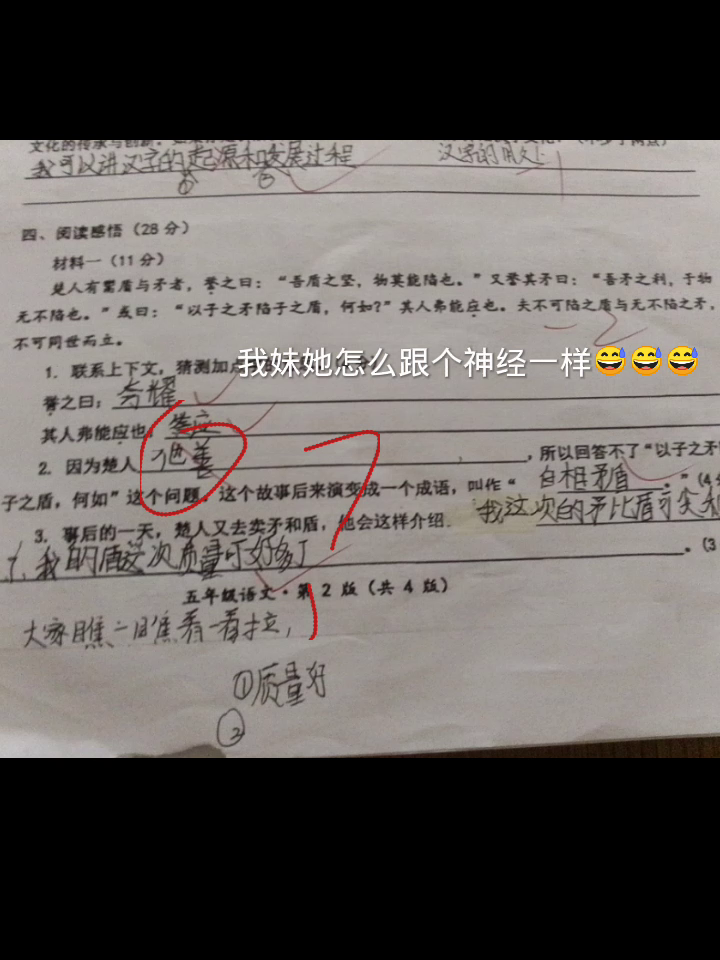 我可以讲汉字的起源和发展过程 汉字的用处
四、阅读感悟（28 分）
材料一（11 分）
楚人有鬻盾与矛者，誉之曰：“吾盾之坚，物莫能陷也。”又誉其矛曰：“吾矛之利，于物
无不陷也。”或曰：“以子之矛陷子之盾，何如？”其人弗能应也。夫不可陷之盾与无不陷之矛，
不可同世而立。
1. 联系上下文，猜测加点
我妹她怎么跟个神经一样😅😅😅
誉之曰：夸耀
其人弗能应也：答应
2. 因为楚人 他善 ，所以回答不了“以子之矛
子之盾，何如”这个问题。这个故事后来演变成一个成语，叫作“自相矛盾。”（4
3. 事后的一天，楚人又去卖矛和盾，他会这样介绍： 我这次的矛比盾
我的盾这次质量可好多了 。（3
五年级语文·第 2 版（共 4 版）
大家瞧一瞧看一看
①质量好
②